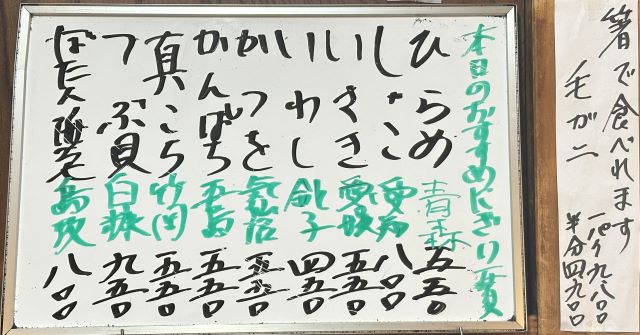 箸で食べれます
毛がニ 一パイ九八〇
半分四九〇
本日のおすすめにぎり一貫
ひらめ 青森 五五〇
しゃこ 愛知 八〇〇
いさき 愛媛 五五〇
いわし 銚子 四五〇
かつを 五五〇
かんぱち 五島 五五〇
真こち 竹岡 五五〇
つぶ貝 白糠 九五〇
ぼたん海老 島牧 八〇〇